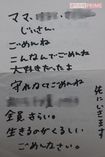 ママ、
じいさん、
ごめんね
こんなんでごめんね
大好きだったよ
守れなくてごめんね
全員さらい。
生きるのがくるしい
ごめんなさい。
先にいきます